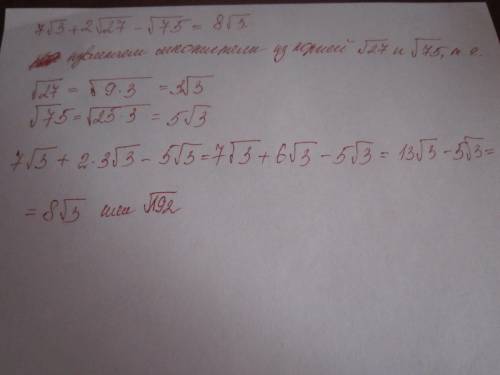 7√3 + 2√27 − √75 = 8√3
множители из корней √27 и √75, т.е.
√27 = √9·3 = 3√3
√75 = √25·3 = 5√3
7√3 + 2·3√3 − 5√3 = 7√3 + 6√3 − 5√3 = 13√3 − 5√3 =
= 8√3 или √192